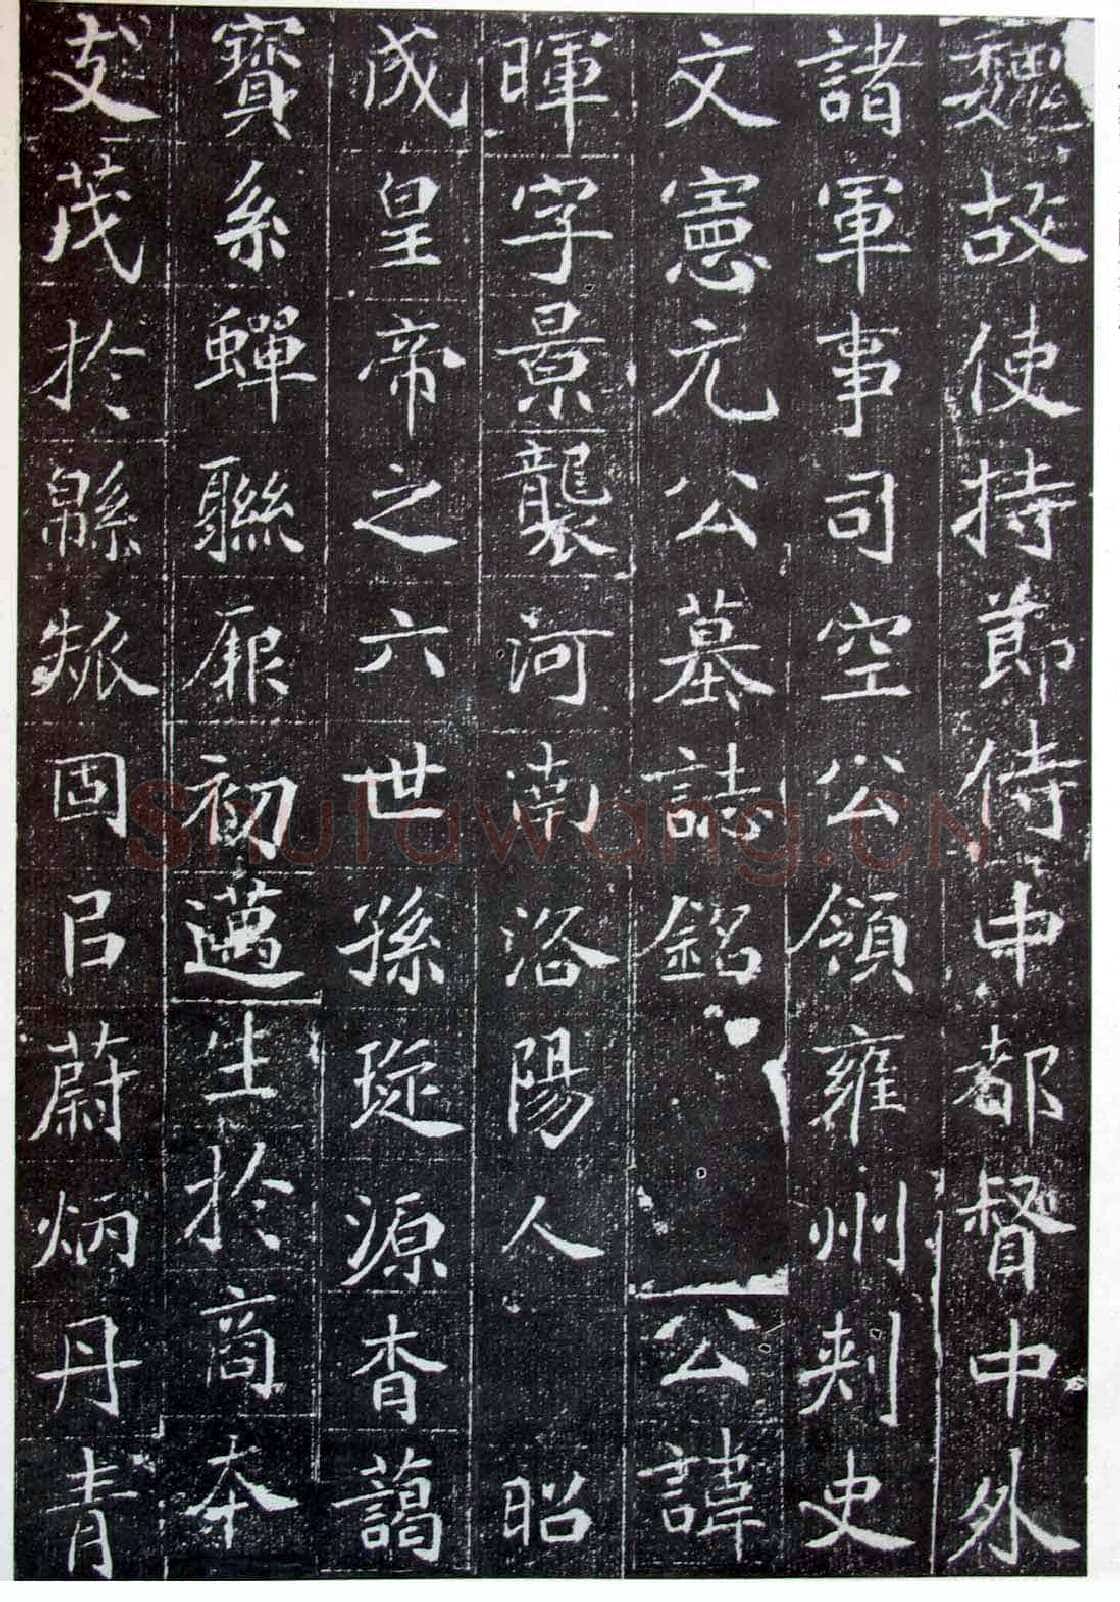 魏故使持節侍中都督中外
諸軍事司空公領雍州刺史
文憲元公墓誌銘 公諱
暉字景襲河南洛陽人 昭
成皇帝之六世孫琁源杳藹
寶系蟬聯厥初邁生於商本
支茂於緜瓞固㠯蔚炳丹青
Shufawang.CN